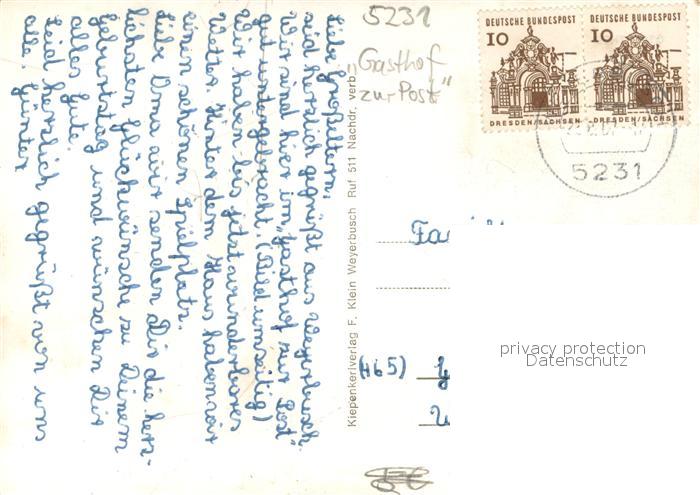 Liebe Großeltern!
seid herzlich gegrüßt aus Weyerbusch.
Wir sind hier im „Gasthof zur Post"
gut untergebracht. (Bild umseitig)
Wir haben bis jetzt wunderbares
Wetter. Hinter dem Haus haben wir
einen schönen Spielplatz.
Liebe Oma wir senden Dir die herz-
lichsten Glückwünsche zu Deinem
Geburtstag und wünschen Dir
alles Gute.
Seid herzlich gegrüßt von uns
alle. Günter
Kiepenkerlverlag F. Klein Weyerbusch Ruf 511 Nachdr. verb.
5231
„Gasthof
zur Post"
DEUTSCHE BUNDESPOST
10
DRESDEN/SACHSEN
DEUTSCHE BUNDESPOST
10
DRESDEN/SACHSEN
5231
(465)
privacy protection
Datenschutz